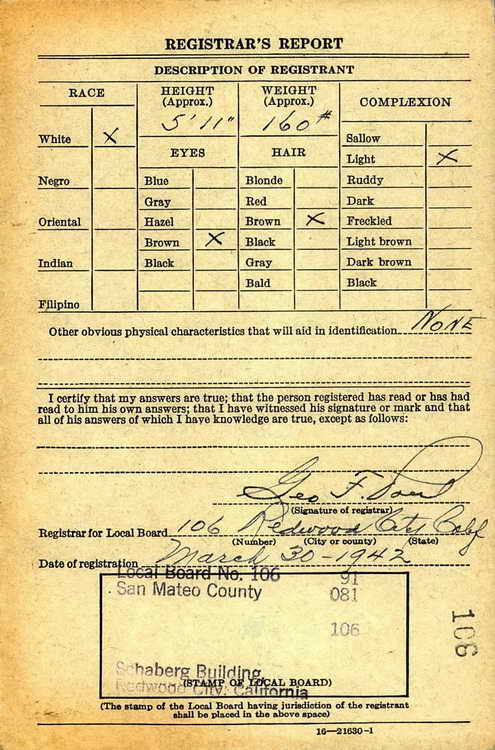 REGISTRAR'S REPORT
DESCRIPTION OF REGISTRANT
RACE HEIGHT (Approx.) WEIGHT (Approx.) COMPLEXION
5' 11" 160#
White X Sallow
EYES HAIR Light X
Negro Blue Blonde Ruddy
Gray Red Dark
Oriental Hazel Brown X Freckled
Brown X Black Light brown
Indian Black Gray Dark brown
Bald Black
Filipino
Other obvious physical characteristics that will aid in identification NONE
I certify that my answers are true; that the person registered has read or has had
read to him his own answers; that I have witnessed his signature or mark and that
all of his answers of which I have knowledge are true, except as follows:
Geo F.
(Signature of registrar)
Registrar for Local Board 106 Redwood City Calif
(Number) (City or county) (State)
Date of registration March 30-1942
Local Board No. 106 91
San Mateo County 081
106
106
Schaberg Building
(STAMP OF LOCAL BOARD)
Redwood City, California
(The stamp of the Local Board having jurisdiction of the registrant
shall be placed in the above space)
16—21630-1